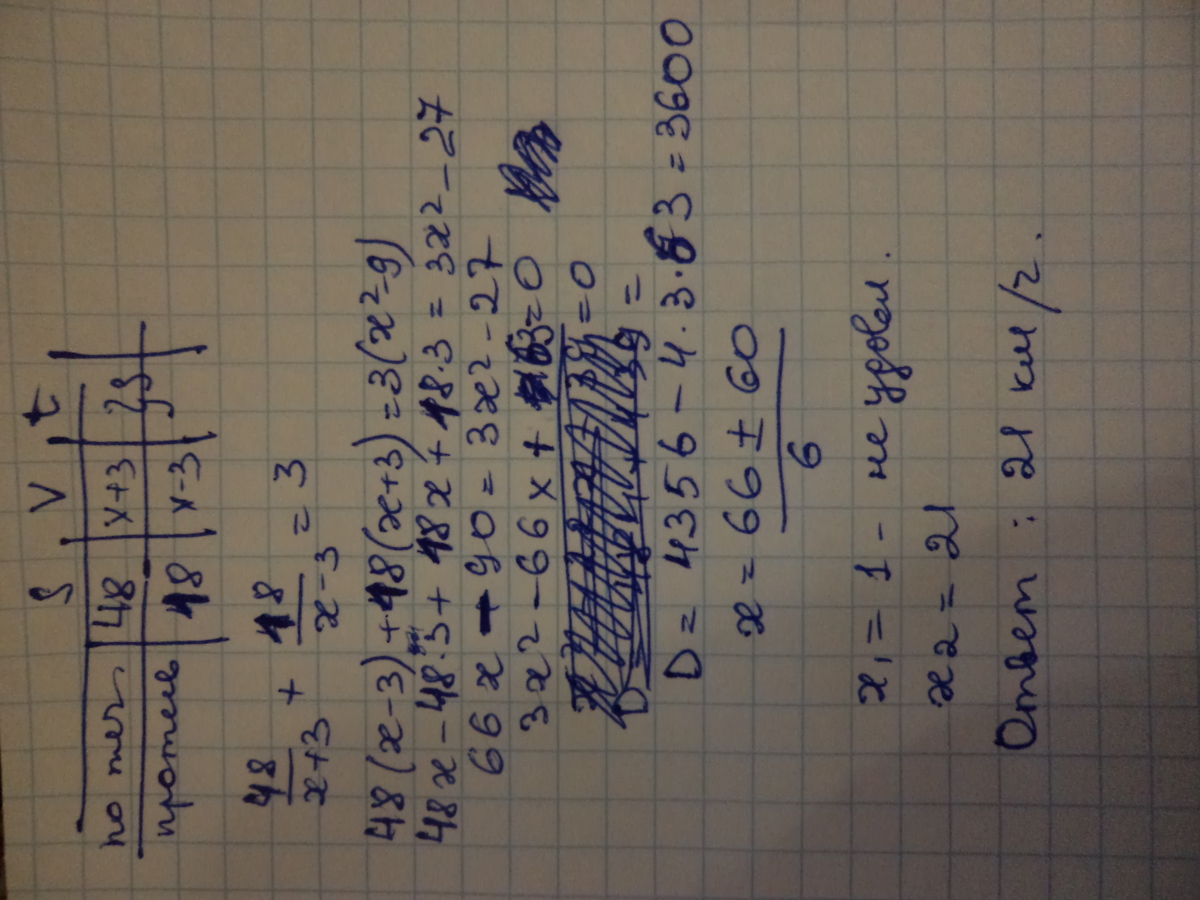 S V t
по теч. 48 x+3 }3
против 18 x-3
48/(x+3) + 18/(x-3) = 3
48(x-3)+18(x+3)=3(x²-9)
48x-48·3+18x+18·3=3x²-27
66x-90=3x²-27
3x²-66x+63=0
=0
D=
D=4356-4·3·63=3600
x=(66±60)/6
x₁=1 - не удовл.
x₂=21
Ответ: 21 км/ч.